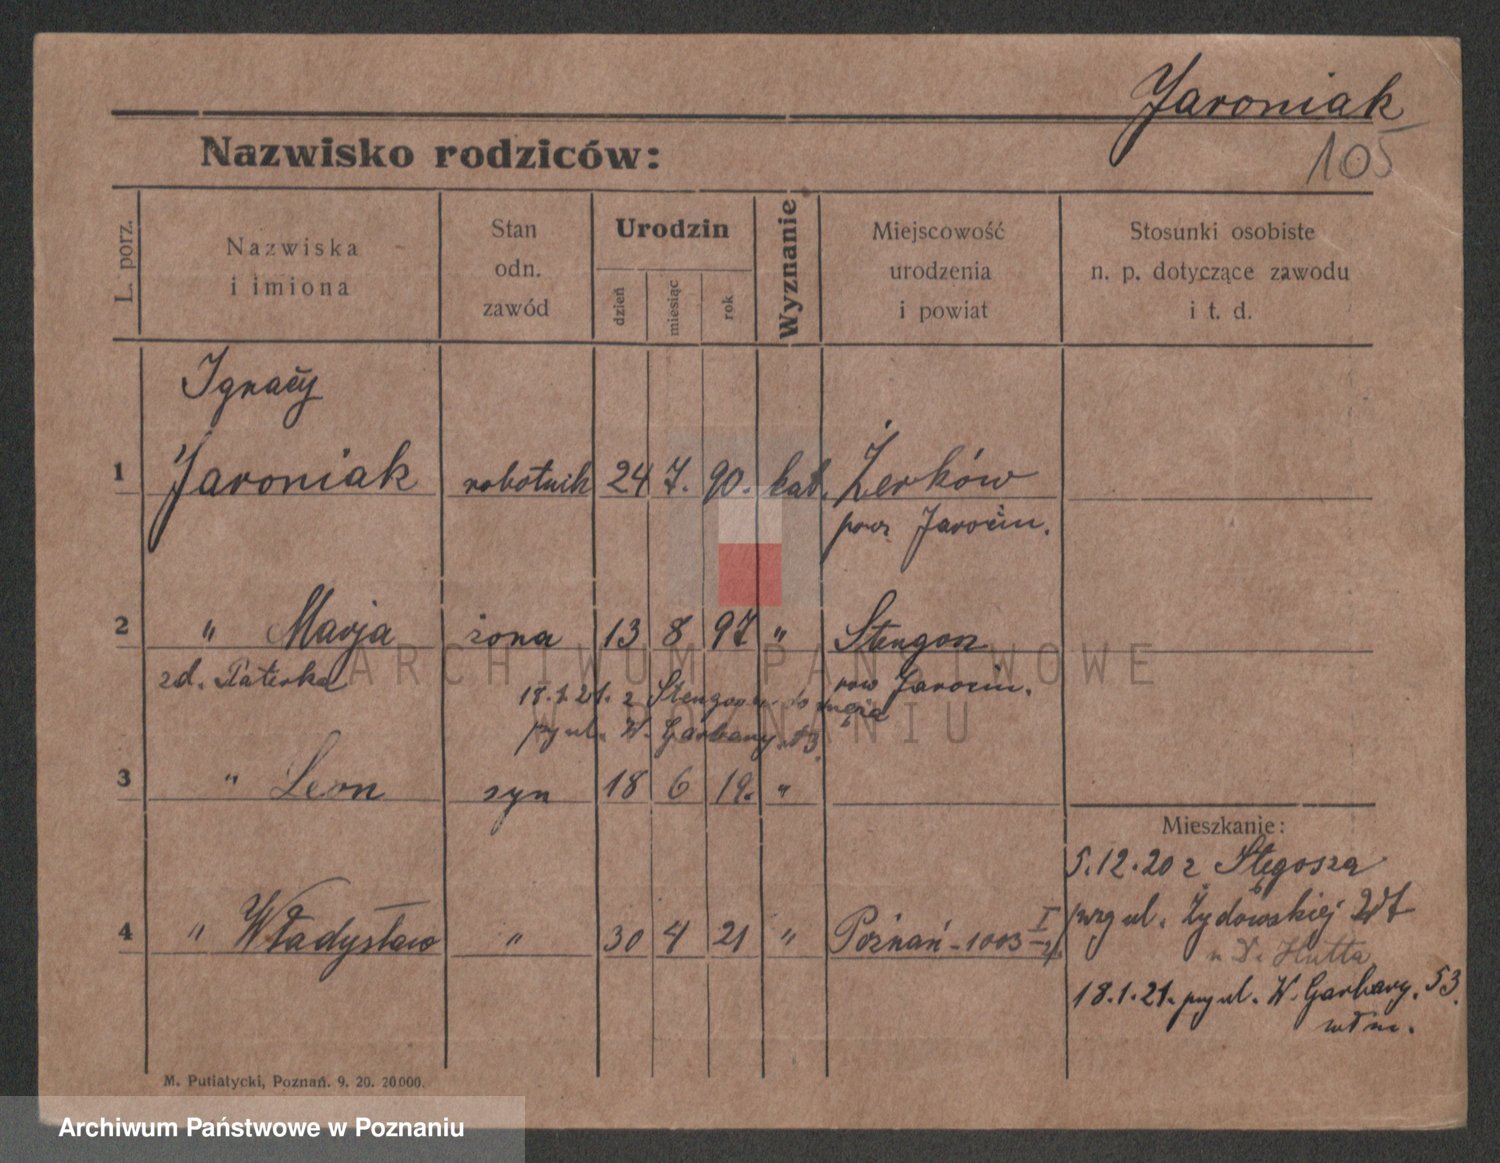 Jaroniak
105
Nazwisko rodziców:
L. porz.
Nazwiska
i imiona
Stan
odn.
zawód
Urodzin
dzień
miesiąc
rok
Wyznanie
Miejscowość
urodzenia
i powiat
Stosunki osobiste
n. p. dotyczące zawodu
i t. d.
Ignacy
1 Jaroniak robotnik 24 7. 90. kat. Żerków
pow Jarocin.
2 " Marja żona 13 8 97 " Stengosz
zd. Paterka pow Jarocin.
18.1.21. z Stengosz do męża
przy ul. W. Garbary 53
3 " Leon syn 18 6 19. "
Mieszkanie:
5.12.20 z Stęgosza
przy ul. Żydowskiej
u Hutta
4 " Władysław " 30 4 21 " Poznań - 1003 I
18.1.21. przy ul. W. Garbary. 53.
M. Putiatycki, Poznań. 9. 20. 20000.
ARCHIWUM PAŃSTWOWE
W POZNANIU
Archiwum Państwowe w Poznaniu